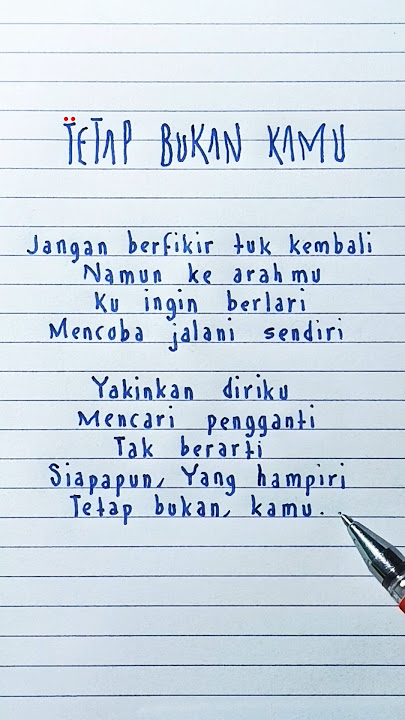 TETAP BUKAN KAMU
Jangan berfikir tuk kembali
Namun ke arahmu
Ku ingin berlari
Mencoba jalani sendiri
Yakinkan diriku
Mencari pengganti
Tak berarti
Siapapun, Yang hampiri
Tetap bukan, kamu..